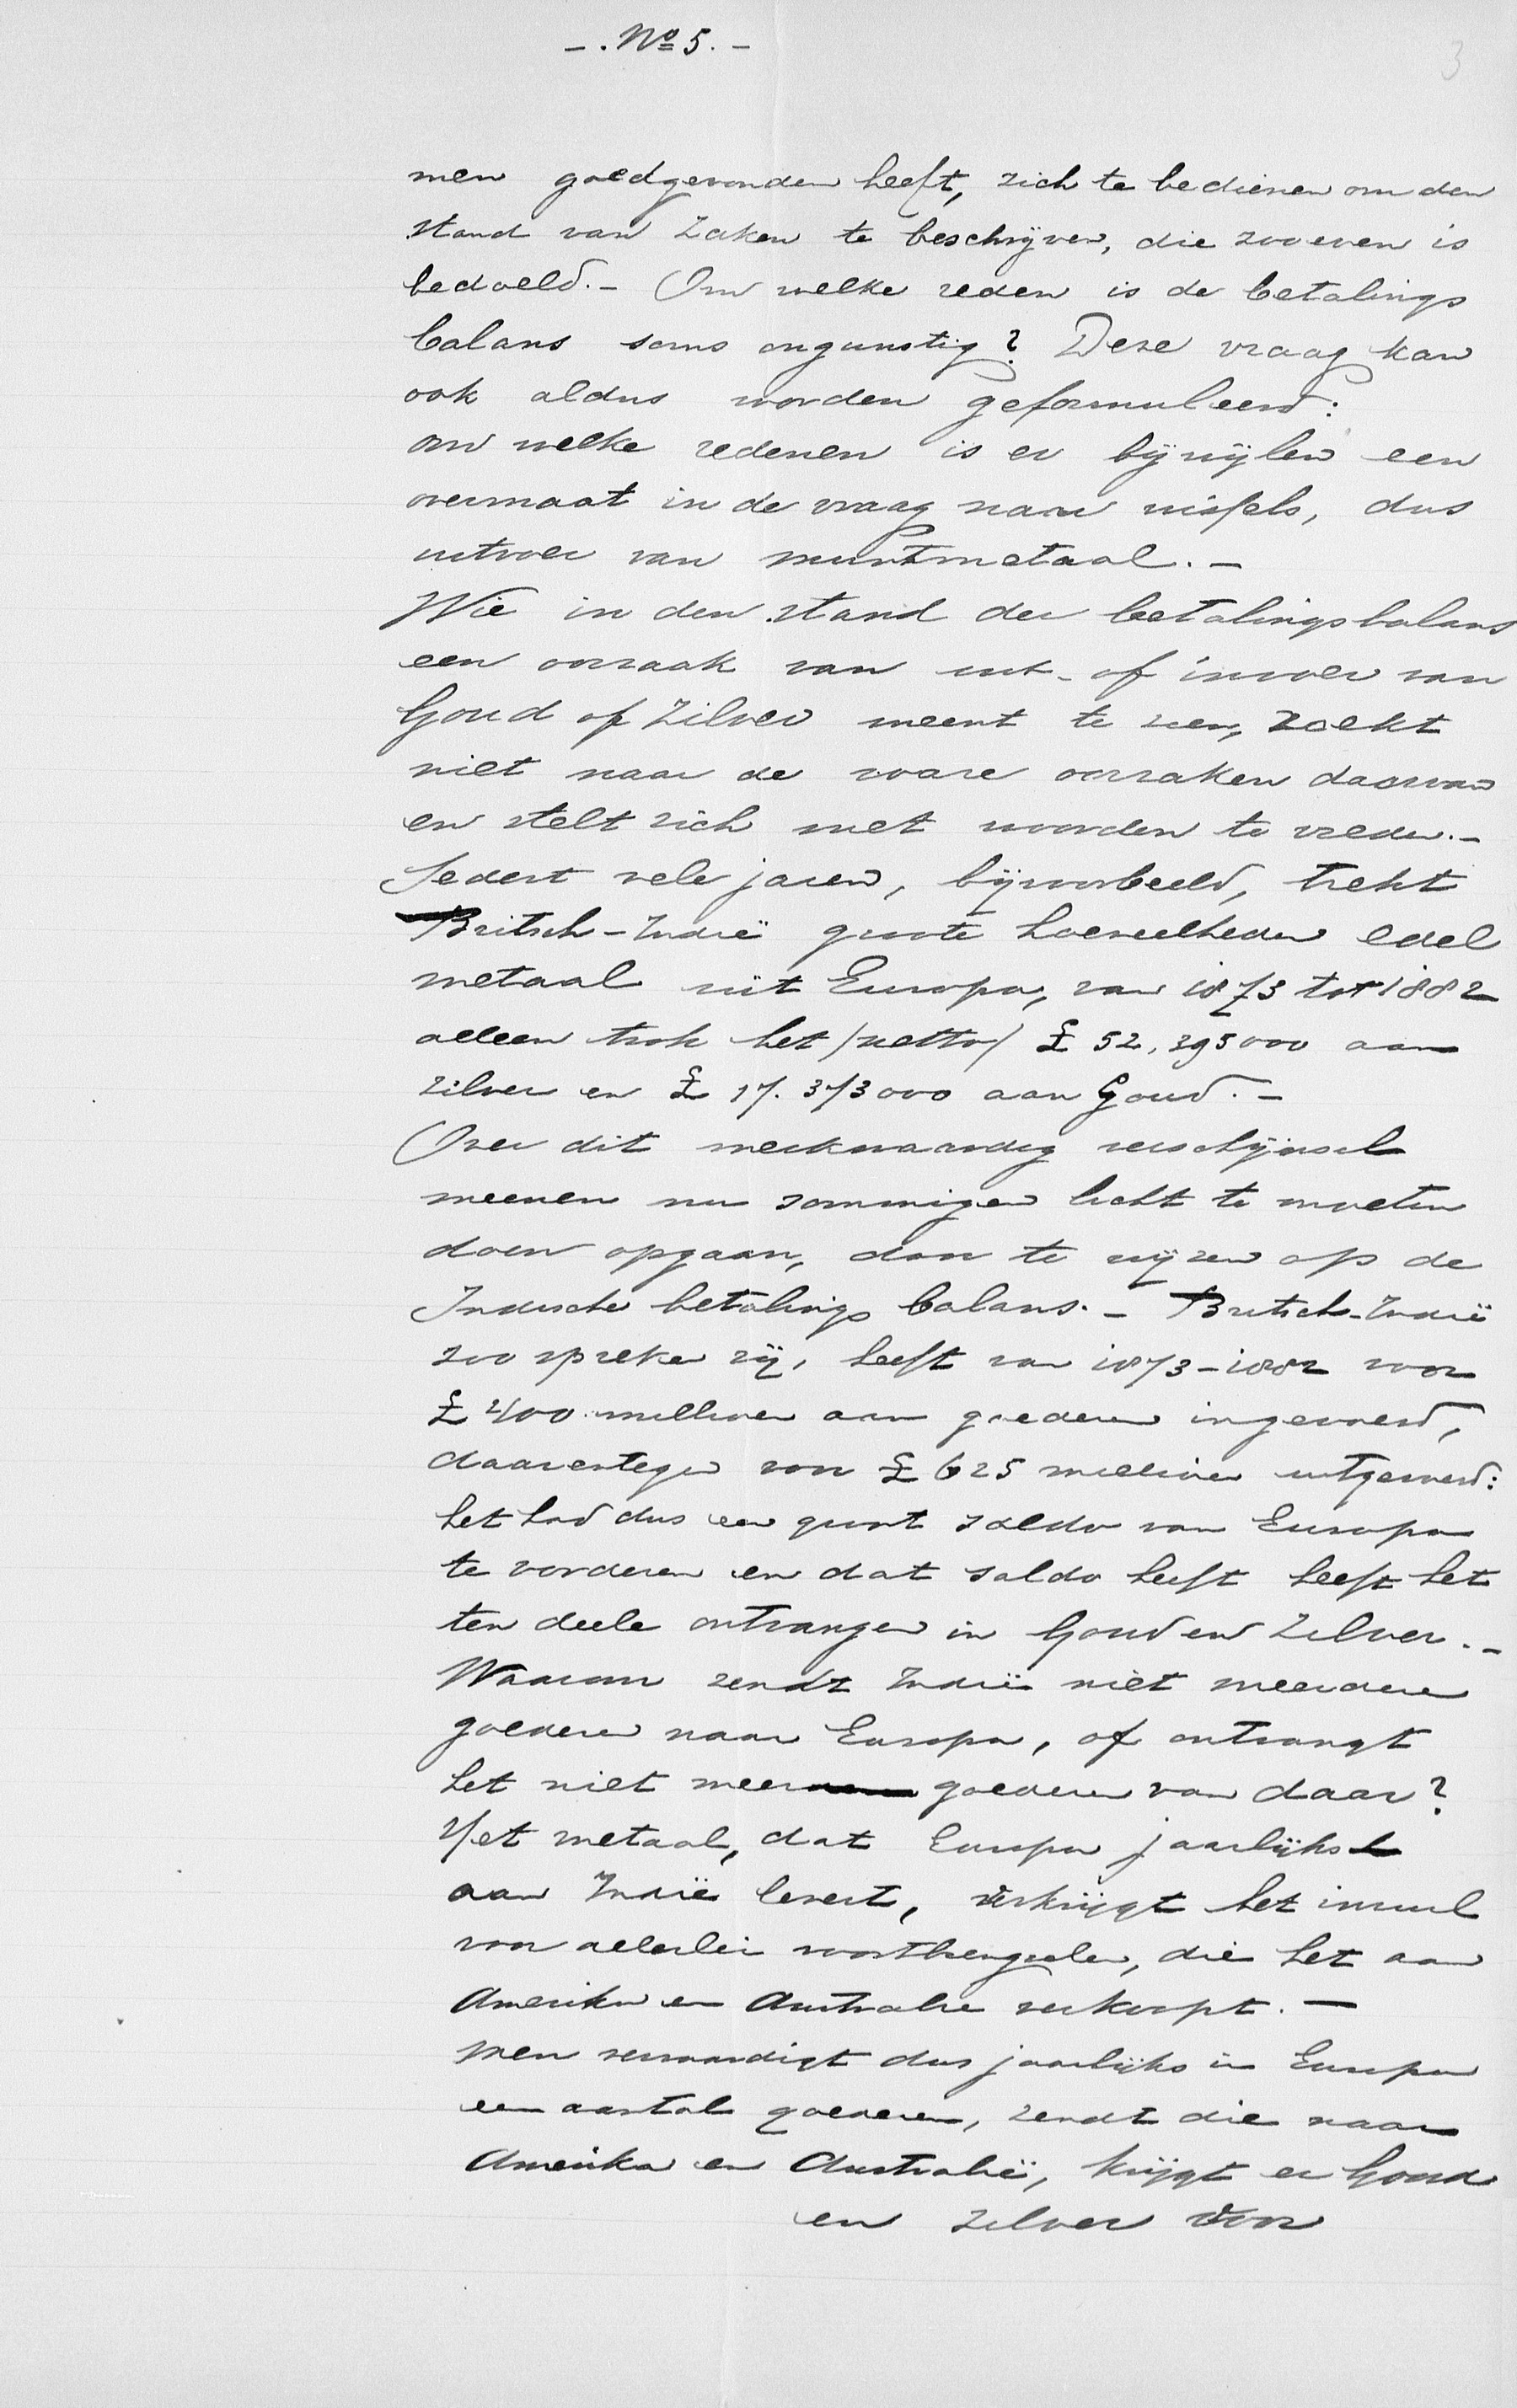 -. No 5. -
3
men goedgevonden heeft, zich te bedienen om den
stand van zaken te beschrijven, die zooeven is
bedoeld. - Om welke reden is de betalings
balans soms ongunstig? Deze vraag kan
ook aldus worden geformuleerd:
om welke redenen is er bijwijlen een
overmaat in de vraag naar wissels, dus
uitvoer van muntmetaal. -
Wie in den stand der betalingsbalans
een oorzaak van uit- of invoer van
Goud of Zilver meent te zien, zoekt
niet naar de ware oorzaken daarvan
en stelt zich met woorden te vreden. -
Sedert vele jaren, bijvoorbeeld, trekt
Britsch-Indië groote hoeveelheden edel
metaal uit Europa, van 1873 tot 1882
alleen trok het /netto/ £ 52,395000 aan
zilver en £ 17.373000 aan Goud. -
Over dit merkwaardig verschijnsel
meenen nu sommigen licht te moeten
doen opgaan, door te wijzen op de
Indische betalings balans. - Britsch-Indië
zoo spreken zij, heeft van 1873-1882 voor
£ 400 millioen aan goederen ingevoerd,
daarentegen voor £ 625 millioen uitgevoerd:
het had dus een groot saldo van Europa
te vorderen en dat saldo heeft heeft het
ten deele ontvangen in Goud en Zilver. -
Waarom zendt Indië niet meerdere
goederen naar Europa, of ontvangt
het niet meer goederen van daar?
Het metaal, dat Europa jaarlijks
aan Indië levert, verkrijgt het inruil
voor allerlei voortbrengselen, die het aan
Amerika en Australië verkoopt. -
Men vervaardigt dus jaarlijks in Europa
een aantal goederen, zendt die naar
Amerika en Australië, krijgt er Goud
en zilver voor